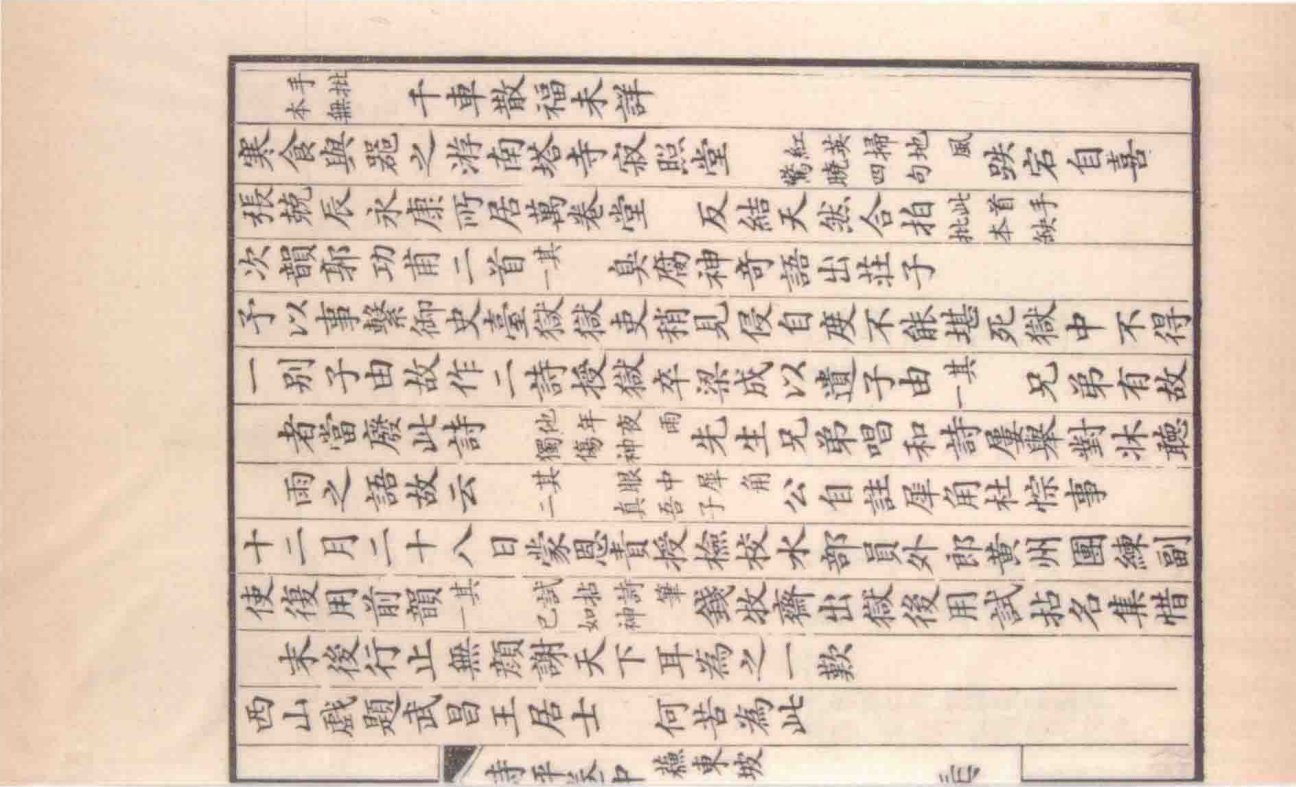 千車散福未詳 手批本無
寒食與器之游南塔寺寂照堂 紅英掃地風驚曉四句 跌宕自喜
張競辰永康所居萬卷堂 反結天然合拍 此首手批本缺
次韻郭功甫二首其一 臭腐神奇語出莊子
予以事繫御史臺獄獄吏稍見侵自度不能堪死獄中不得
一別子由故作二詩授獄卒梁成以遺子由其一 兄弟有故
者當廢此詩 他年夜雨獨傷神 先生兄弟唱和詩屢舉對牀聽
雨之語故云 其二 眼中犀角真吾子 公自註犀角杜悰事
十二月二十八日蒙恩責授檢校水部員外郎黃州團練副
使復用前韻其一 試拈詩筆已如神 錢牧齋出獄後用試拈名集惜
末後行止無顏謝天下耳為之一歎
西山戲題武昌王居士 何苦為此
蘇東坡